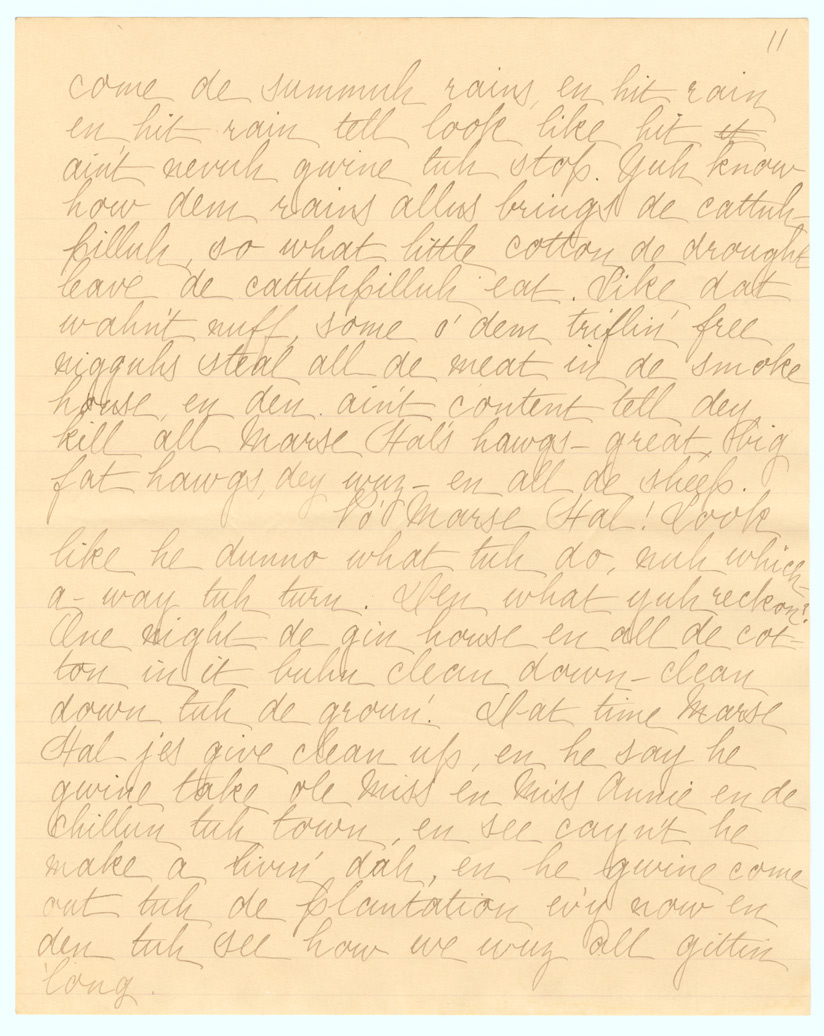 11
come de summuh rains, en hit rain
en hit rain tell look like hit it
ain't nevuh gwine tuh stop. Yuh know
how dem rains allus brings de cattuh-
pilluh, so what little cotton de drought
leave de cattuhpilluh eat. Like dat
wahn't nuff, some o' dem triflin' free
nigguhs steal all de meat in de smoke
house, en den ain't content tell dey
kill all Marse Hal's hawgs – great, big
fat hawgs, dey wuz – en all de sheep.
Po' Marse Hal! Look
like he dunno what tuh do, nuh which-
a-way tuh turn. Den what yuh reckon?
One night de gin house en all de cot-
ton in it buhn clean down – clean
down tuh de groun'. Dat time Marse
Hal jes give clean up, en he say he
gwine take ole Miss en Miss Annie en de
chillun tuh town, en see cayn't he
make a livin' dah, en he gwine come
out tuh de plantation ev'y now en
den tuh see how we wuz all gittin
'long.